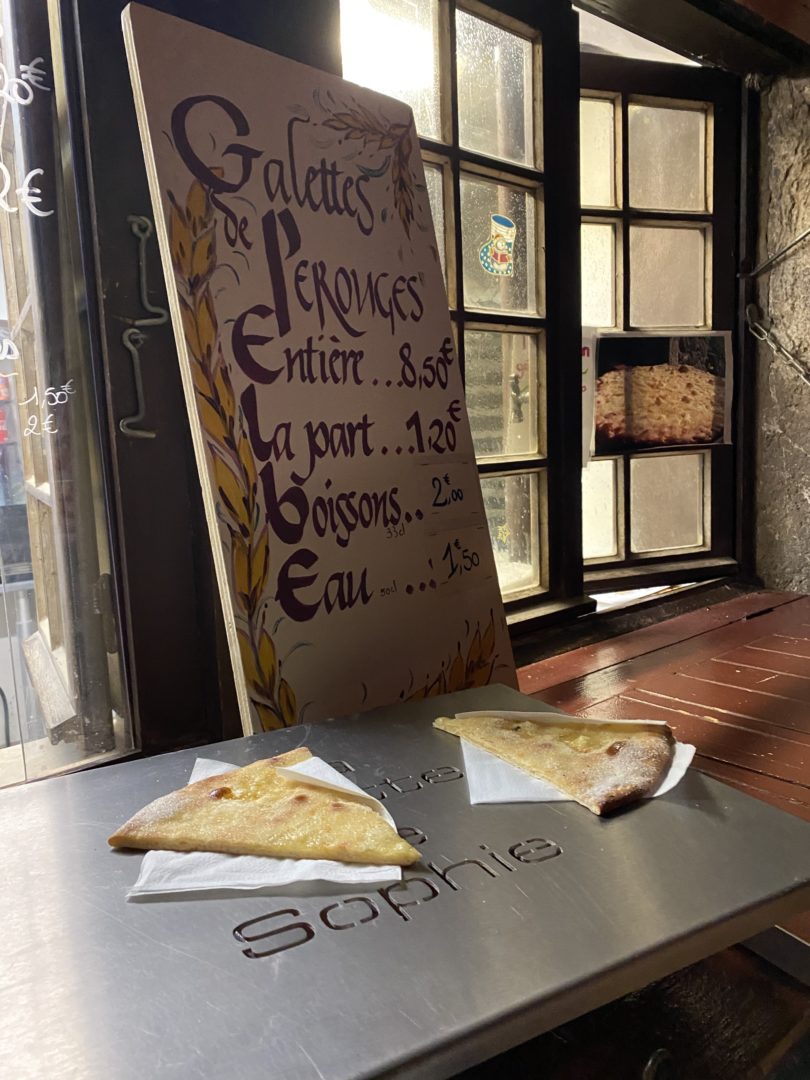 Galettes
de PEROUGES
Entière...8,50€
la part...1,20€
boissons.. 2€,00
33cl
Eau 50cl ...1€,50
Sophie
2€
1,50€
2€